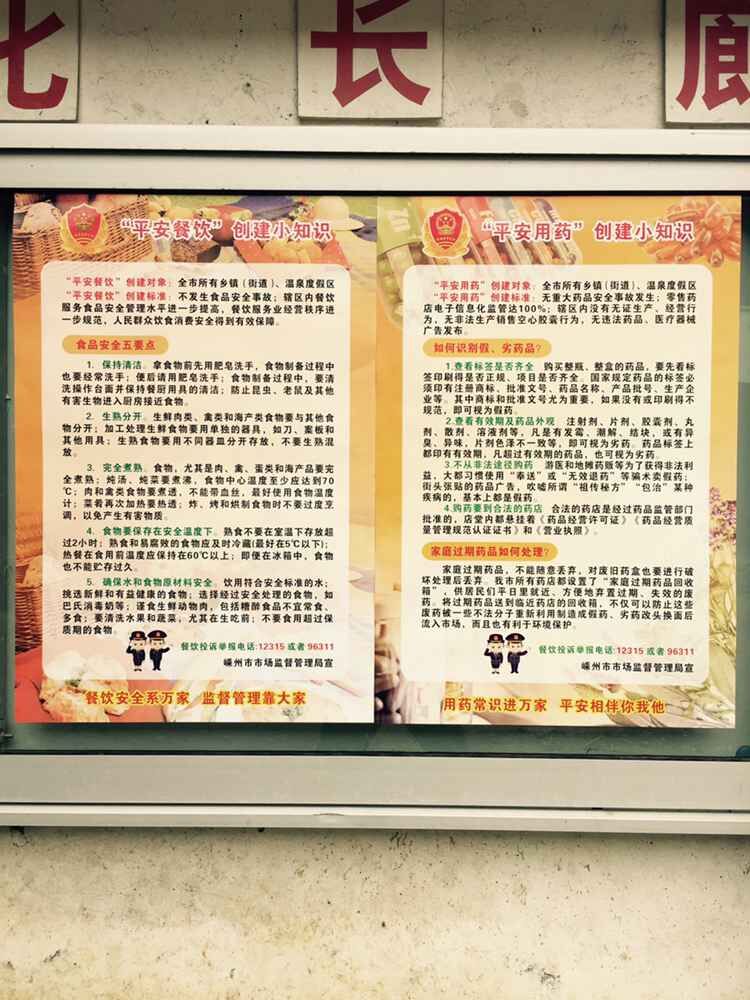 长廊
“平安餐饮”创建小知识
“平安餐饮”创建对象：全市所有乡镇（街道）、温泉度假区
“平安餐饮”创建标准：不发生食品安全事故；辖区内餐饮
服务食品安全管理水平进一步提高，餐饮服务业经营秩序进
一步规范，人民群众饮食消费安全得到有效保障。
食品安全五要点
1、保持清洁。拿食物前先用肥皂洗手，食物制备过程中
也要经常洗手；便后请用肥皂洗手；食物制备过程中，要清
洗操作台面并保持餐厨用具的清洁；防止昆虫、老鼠及其他
有害生物进入厨房接近食物。
2、生熟分开。生鲜肉类、禽类和海产类食物要与其他食
物分开；加工处理生鲜食物要用单独的器具，如刀、案板和
其他用具；生熟食物要用不同器皿分开存放，不要生熟混
放。
3、完全煮熟。食物，尤其是肉、禽、蛋类和海产品要完
全煮熟；炖汤、炖菜要煮沸，食物中心温度至少应达到70
℃；肉和禽类食物要煮透，不能带血丝，最好使用食物温度
计；菜肴再次加热要热透；炸、烤和烘制食物时不要过度烹
调，以免产生有害物质。
4、食物要保存在安全温度下。熟食不要在室温下存放超
过2小时；熟食和易腐败的食物应及时冷藏(最好在5℃以下)；
热餐在食用前温度应保持在60℃以上；即便在冰箱中，食物
也不能贮存过久。
5、确保水和食物原材料安全。饮用符合安全标准的水；
挑选新鲜和有益健康的食物；选择经过安全处理的食物，如
巴氏消毒奶等；谨食生鲜动物肉，包括糟醉食品不宜常食、
多食；要清洗水果和蔬菜，尤其在生吃前；不要食用超过保
质期的食物。
餐饮投诉举报电话:12315 或者 96311
嵊州市市场监督管理局宣
餐饮安全系万家 监督管理靠大家
“平安用药”创建小知识
“平安用药”创建对象：全市所有乡镇（街道）、温泉度假区
“平安用药”创建标准：无重大药品安全事故发生；零售药
店电子信息化监管达100%；辖区内没有无证生产、经营行
为，无非法生产销售空心胶囊行为，无违法药品、医疗器械
广告发布。
如何识别假、劣药品？
1.查看标签是否齐全 购买整瓶、整盒的药品，要先看标
签印刷得是否正规、项目是否齐全。国家规定药品的标签必
须印有注册商标、批准文号、药品名称、产品批号、生产企
业等。其中商标和批准文号尤为重要，如果没有或印刷得不
规范，即可视为假药。
2.查看有效期及药品外观 注射剂、片剂、胶囊剂、丸
剂、散剂、溶液剂等，凡是有发霉、潮解、结块，或有异
臭、异味，片剂色泽不一致等，即可视为劣药。药品标签上
都印有有效期，凡超过有效期的药品，也可视为劣药。
3.不从非法途径购药 游医和地摊药贩等为了获得非法利
益，大都习惯使用“奉送”或“无效退药”等骗术卖假药；
街头张贴的药品广告，吹嘘所谓“祖传秘方”“包治”某种
疾病的，基本上都是假药。
4.购药要到合法的药店 合法的药店是经过药品监管部门
批准的，店堂内都悬挂着《药品经营许可证》《药品经营质
量管理规范认证证书》和《营业执照》。
家庭过期药品如何处理？
家庭过期药品，不能随意丢弃，对废旧药盒也要进行破
坏处理后丢弃。我市所有药店都设置了“家庭过期药品回收
箱”，供居民们平日里就近、方便地弃置过期、失效的废
药。将过期药品送到临近药店的回收箱，不仅可以防止这些
废药被一些不法分子重新利用制造成假药、劣药改头换面后
流入市场，而且也有利于环境保护。
餐饮投诉举报电话:12315 或者 96311
嵊州市市场监督管理局宣
用药常识进万家 平安相伴你我他